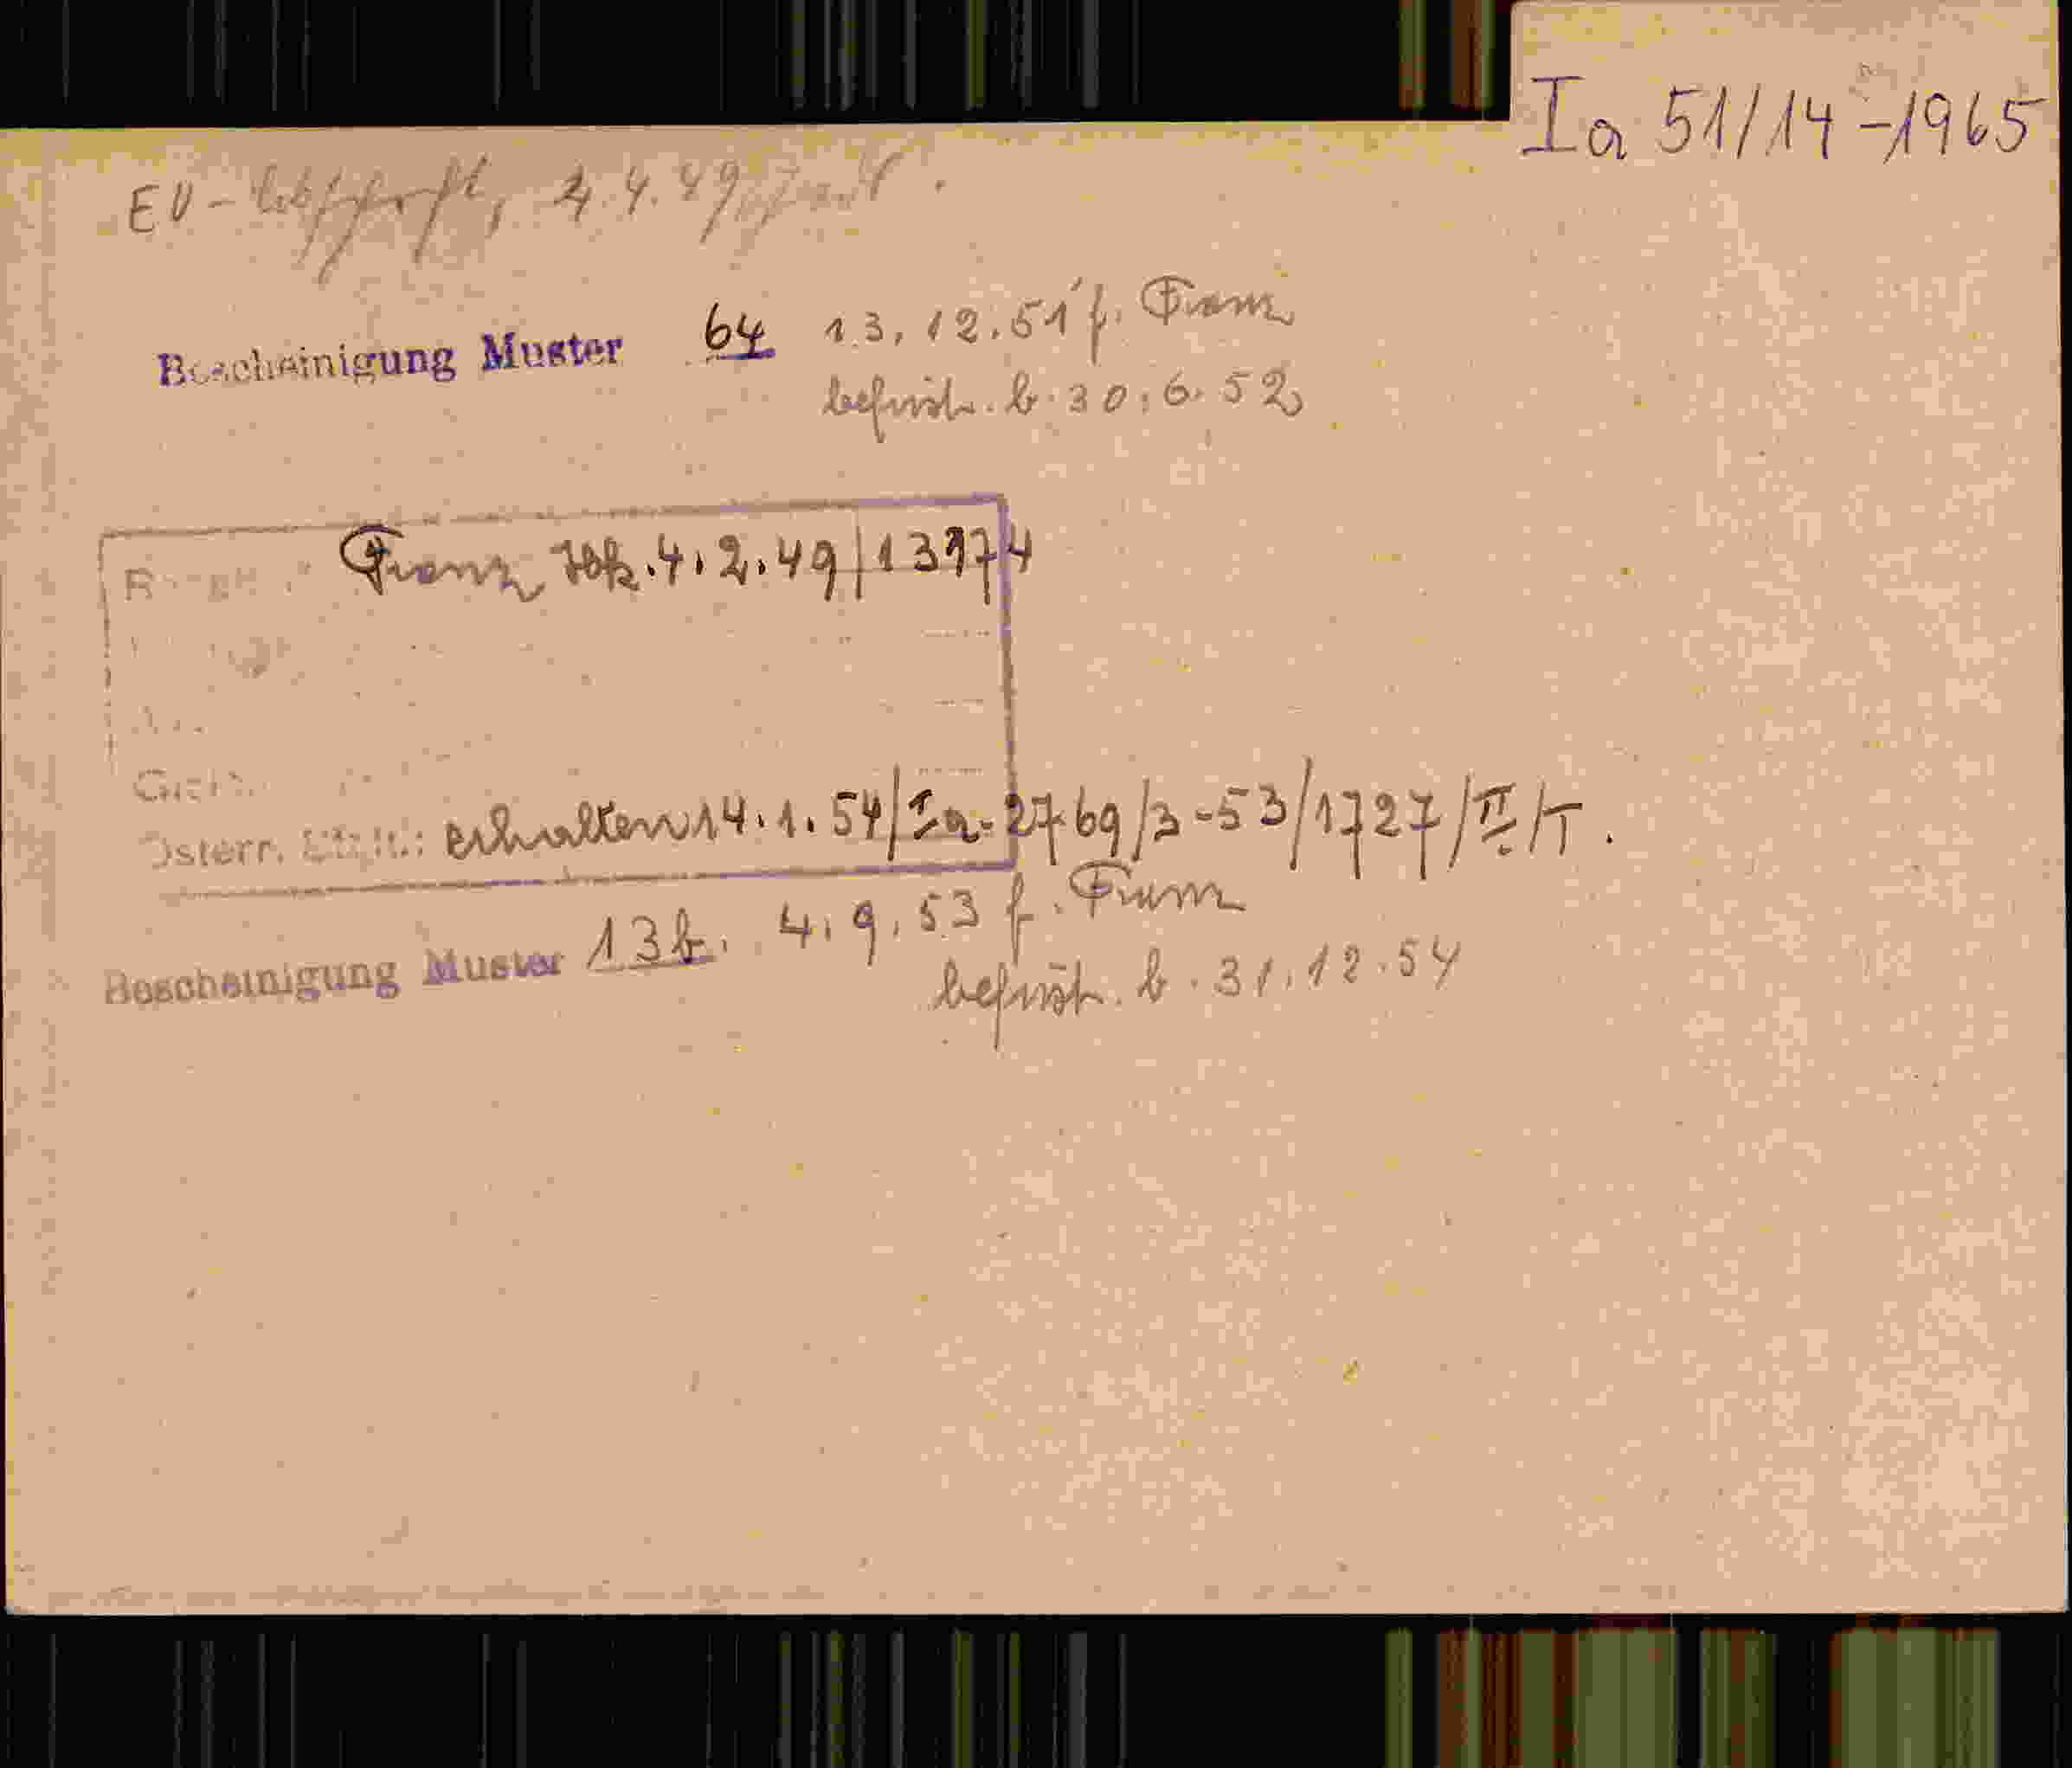 Ia 51/14-1965
EV- 2.4.49
Bescheinigung Muster 64 13.12.51 f. Franz
befrist. b. 30.6.52
Franz Idk. 4.2.49/13974
Österr. erhalten 14.1.54/Ia-2769/3-53/1727/II/T.
Bescheinigung Muster 13b. 4.9.53 f. Franz
befrist. b. 31.12.54